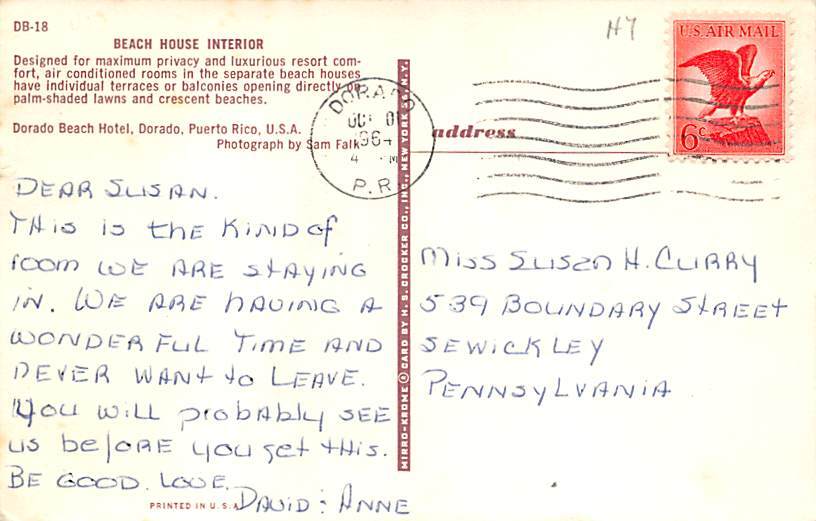 DB-18
BEACH HOUSE INTERIOR
Designed for maximum privacy and luxurious resort com-
fort, air conditioned rooms in the separate beach houses
have individual terraces or balconies opening directly on
palm-shaded lawns and crescent beaches.
Dorado Beach Hotel, Dorado, Puerto Rico, U.S.A.
Photograph by Sam Falk
DEAR SUSAN.
THis is thE KIND of
room WE ARE StAYING
IN. WE ARE HAVING A
WONDERFUL TIME AND
NEVER WANt to LEAVE.
YOU WiLL probAbly SEE
us beforE you get tHis.
BE GOOD. LOVE.
DAVID : ANNE
PRINTED IN U.S.A.
MIRRO-KROME ® CARD BY H. S. CROCKER CO., INC., NEW YORK N.Y.
H7
U.S. AIR MAIL
6c
DORADO
OCT
1964
4 M
P.R.
address
MISS SUSAN H. CURRY
539 BOUNDARY StREEt
SEWICKLEY
PENNSYLVANIA